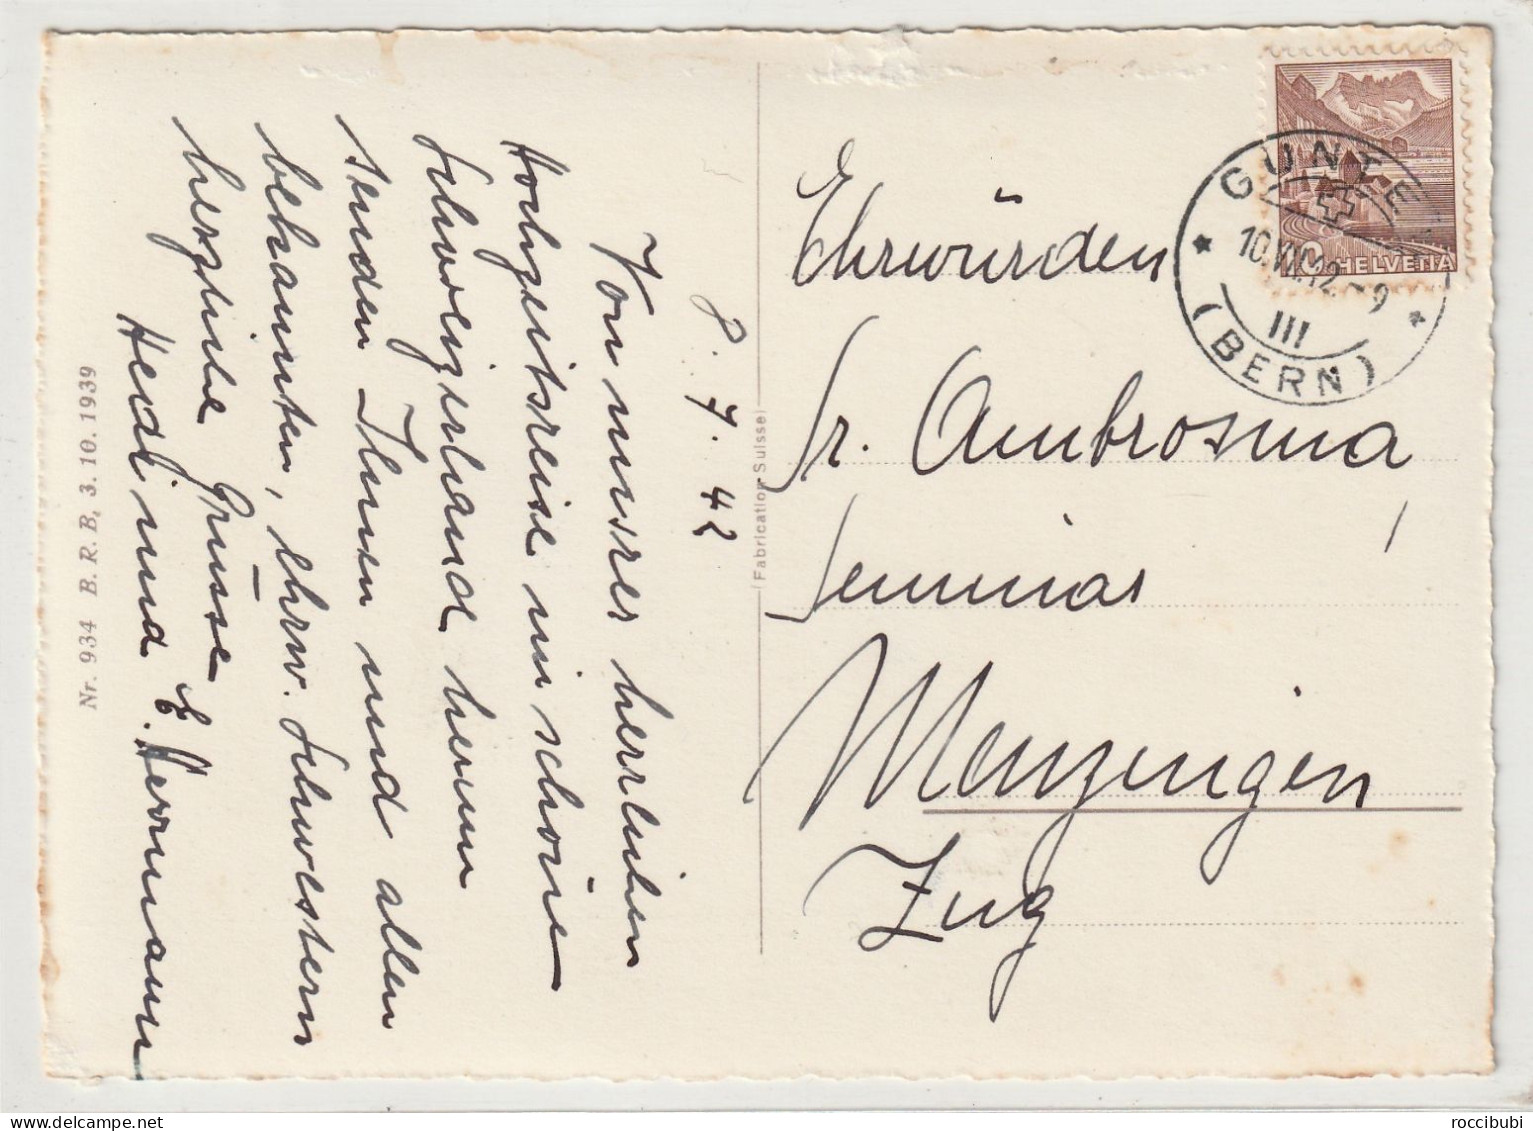 8. 7. 42
Von unsrer herrlichen
Hochzeitsreise im schöne
Schweizerland herum
senden Ihnen und allen
bekannten, Ehrw. Schwestern
herzliche Grüsse
Heidi und E. Herrmann
Ehrwürden
Sr. Ambrosina
Seminar
Menzingen
Zug
GUNTE
10.VII.42-9
III
(BERN)
10 HELVETIA
(Fabrication Suisse)
Nr. 934 B. R. B. 3. 10. 1939
roccibubi